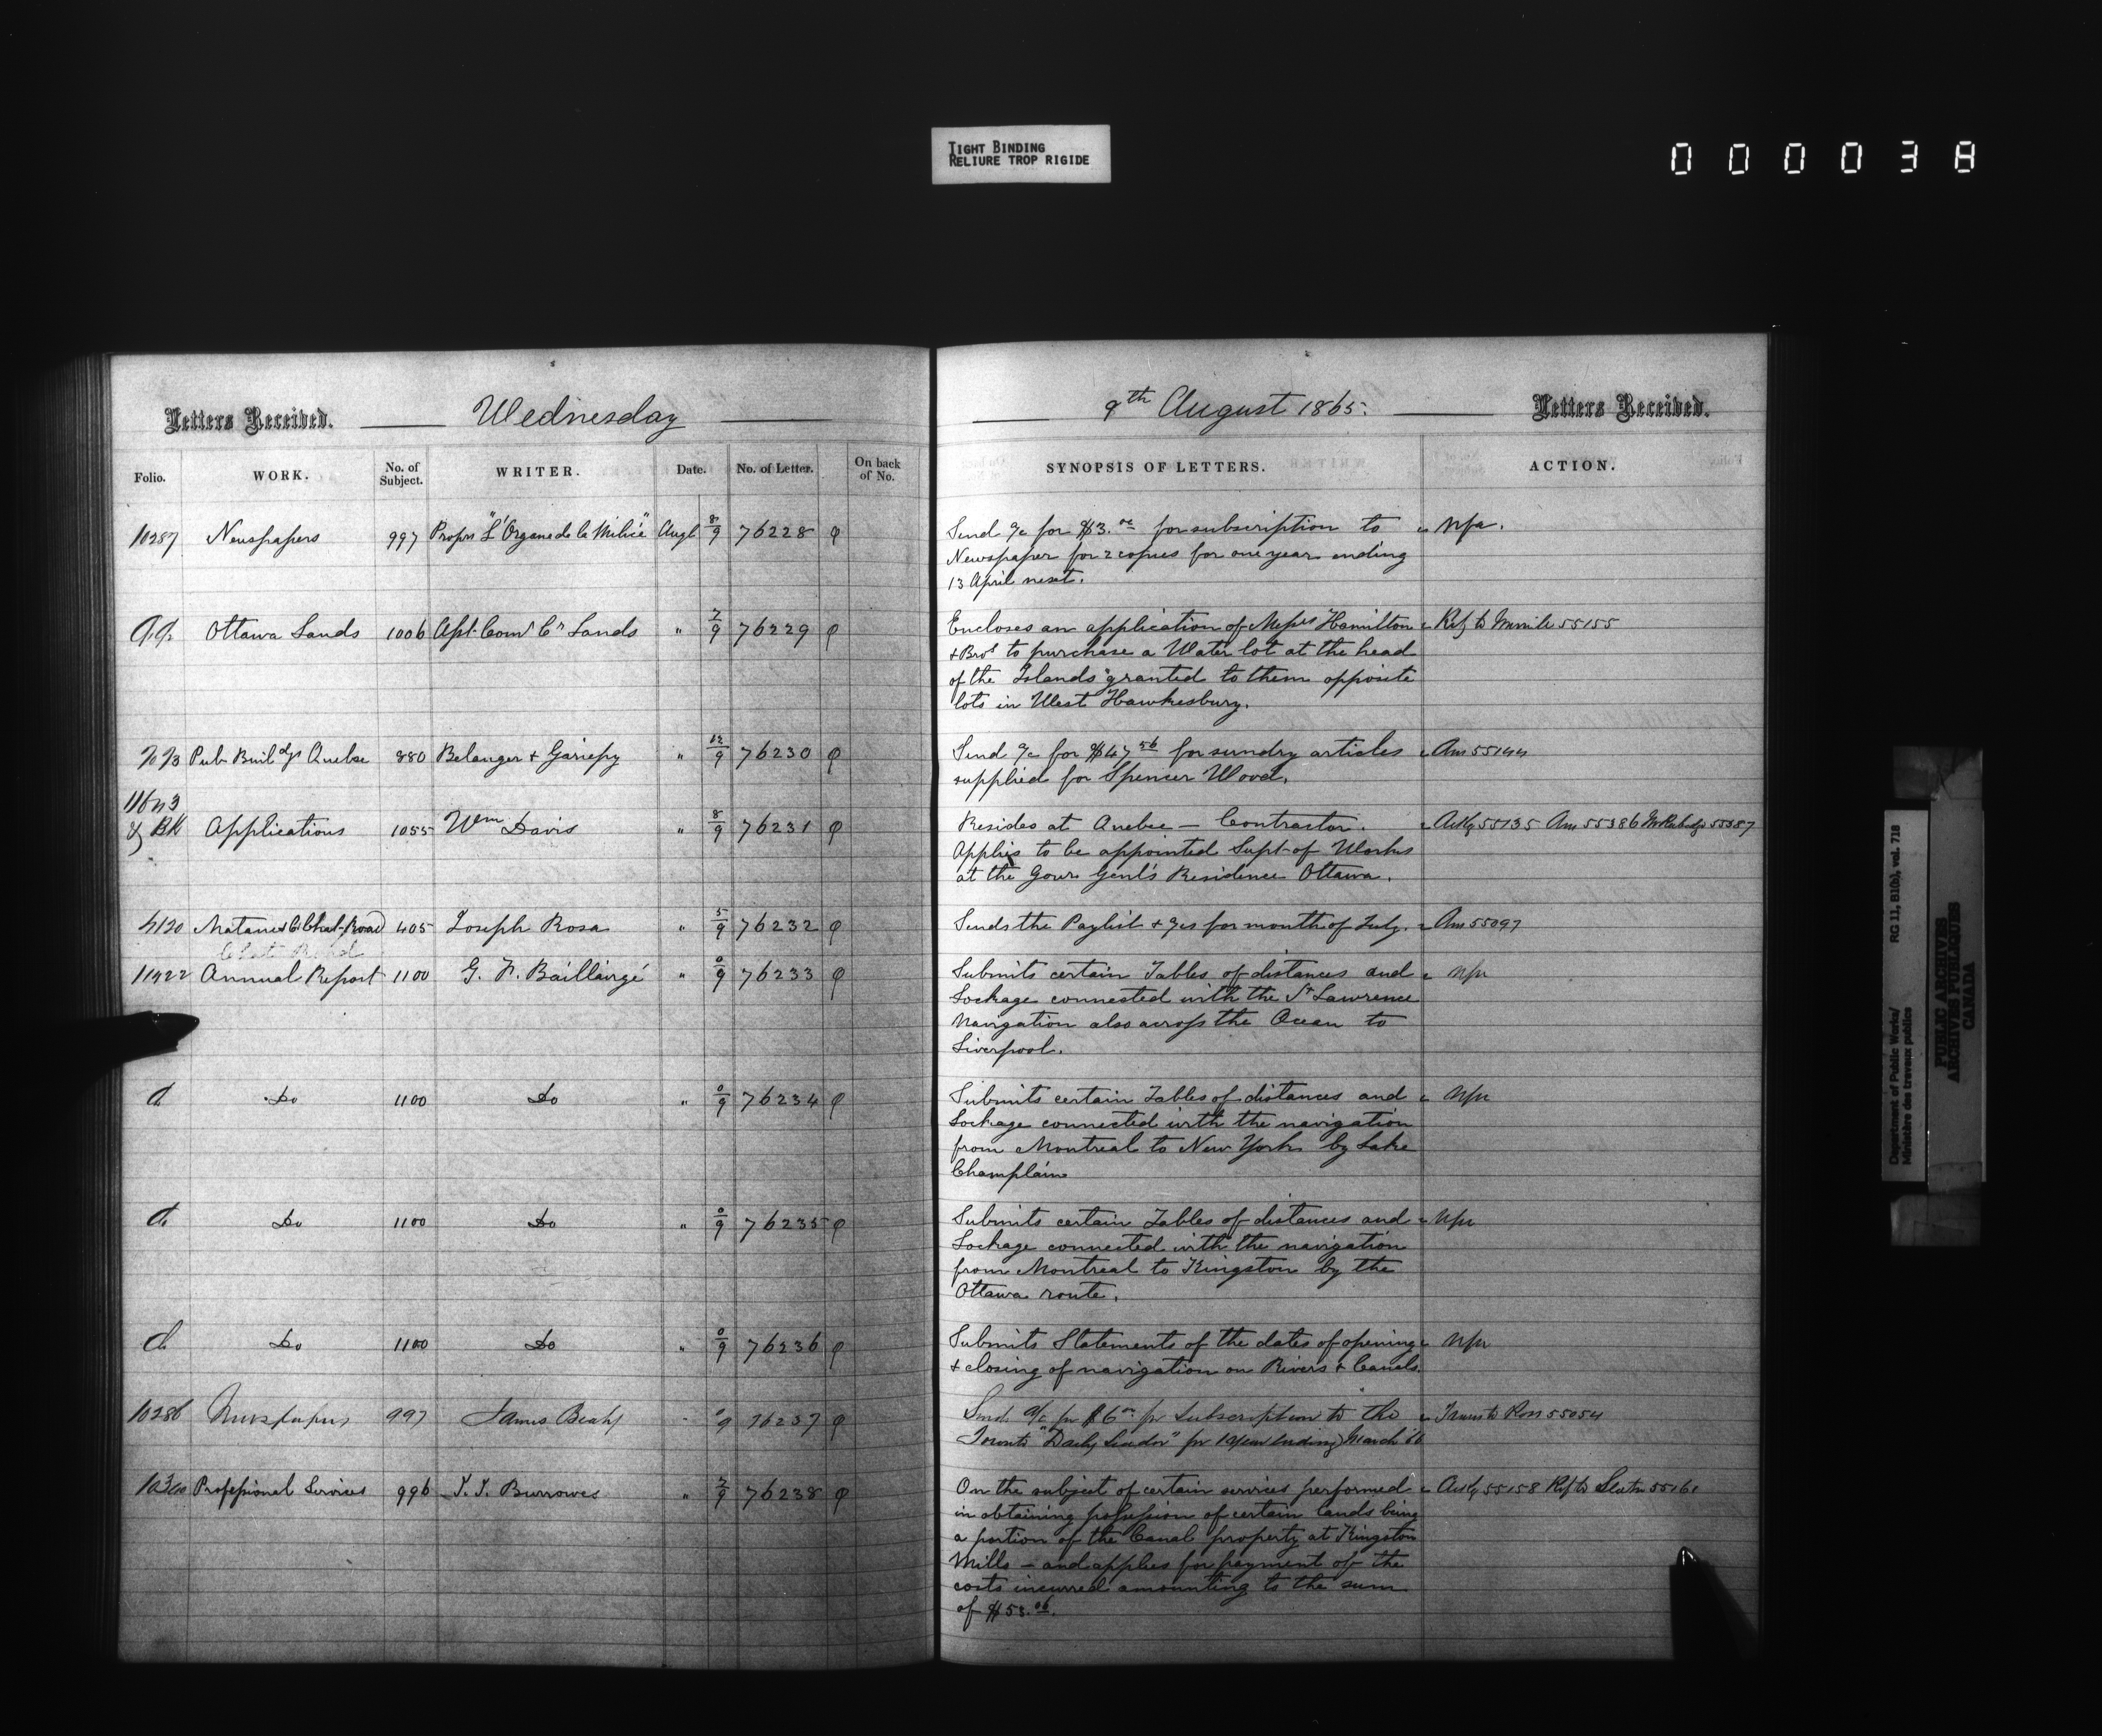 TIGHT BINDING
RELIURE TROP RIGIDE
000038
Letters Received. Wednesday
Folio. WORK. No. of Subject. WRITER. Date. No. of Letter. On back of No.
10287 Newspapers 997 Proprs "L'Organe de la Milice" Augt 8/9 76228
Ottawa Lands 1006 Asst. Comr Cn Lands " 7/9 76229
Pub Buildgs Quebec 880 Belanger & Gariepy " 76230
& BK Applications 1055 Wm Davis " 8/9 76231
4120 Matane & C. Chat Road 405 Joseph Rosa " 5/9 76232
11422 Annual Report 1100 G. F. Baillairgé " 0/9 76233
d. Do 1100 Do " 0/9 76234
d. Do 1100 Do " 0/9 76235
d. Do 1100 Do " 0/9 76236
10286 Newspapers 997 James Beaty " 0/9 76237
Professional Services 996 T. T. Burrowes " 7/9 76238
9th August 1865. Letters Received.
SYNOPSIS OF LETTERS. ACTION.
Send a/c for $3.00 for subscription to Nfa.
Newspaper for 2 copies for one year ending
13 April next.
Encloses an application of Messrs Hamilton Ref to Merrill 55155
& Bros to purchase a Water lot at the head
of the "Islands" granted to them opposite
lots in West Hawkesbury.
Send a/c for $47.56 for sundry articles Ans 55144
supplied for Spencer Wood.
Resides at Quebec - Contractor. Ackg 55135 Ans 55386 55387
Applies to be appointed Supt of Works
at the Govr Genl's Residence Ottawa.
Sends the Paylist & a/cs for month of July. Ans 55097
Submits certain Tables of distances and Nfa
Lockage connected with the St Lawrence
Navigation also across the Ocean to
Liverpool.
Submits certain Tables of distances and Nfa
Lockage connected with the navigation
from Montreal to New York by Lake
Champlain
Submits certain Tables of distances and Nfa
Lockage connected with the navigation
from Montreal to Kingston by the
Ottawa route.
Submits Statements of the dates of opening Nfa
& closing of navigation on Rivers & Canals.
Send a/c for $6.00 for Subscription to the Trans to Ross 55054
Toronto "Daily Leader" for 1 year ending March 66
On the subject of certain services performed Ackg 55158 Ref to Slater 55161
in obtaining possession of certain lands being
a portion of the Canal property at Kingston
Mills - and applies for payment of the
costs incurred amounting to the sum
of $58.06.
Department of Public Works/
Ministère des travaux publics
RG 11, B1(b), vol. 718
PUBLIC ARCHIVES
ARCHIVES PUBLIQUES
CANADA